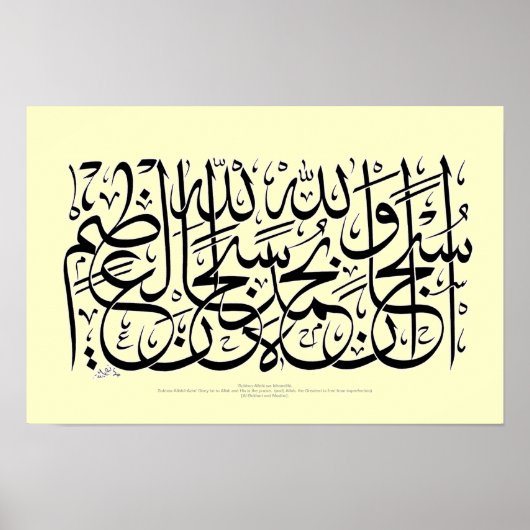 سُبْحَانَ اللهِ وَبِحَمْدِهِ سُبْحَانَ اللهِ الْعَظِيمِ
"Subhan Allahi wa bihamdihi,
Subhana-llāhil-Azim" Glory be to Allah and His is the praise, (and) Allah, the Greatest is free from imperfection)
(Al-Bukhari and Muslim)